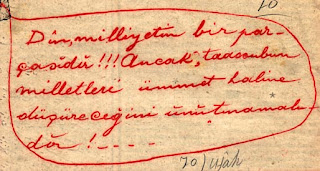 10
Din, milliyetin bir par-
çasıdır!!! Ancak, taassubun
milletleri ümmet haline
düşüreceğini unutmamalı-
dır! - - - -